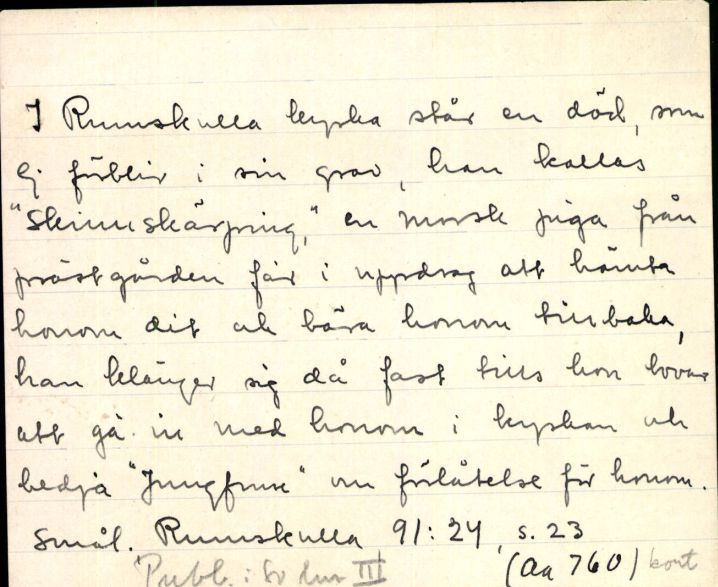 I Rumskulla kyrka står en död, som
ej förblir i sin grav, han kallas
"Skinnskärping," en morsk piga från
prästgården får i uppdrag att hämta
honom dit och bära honom tillbaka,
han klänger sig då fast tills hon lovar
att gå in med honom i kyrkan och
bedja "Jungfrun" om förlåtelse för honom.
Smål. Rumskulla 91:24, s. 23
(Aa 760) kort
Publ. i Sv III